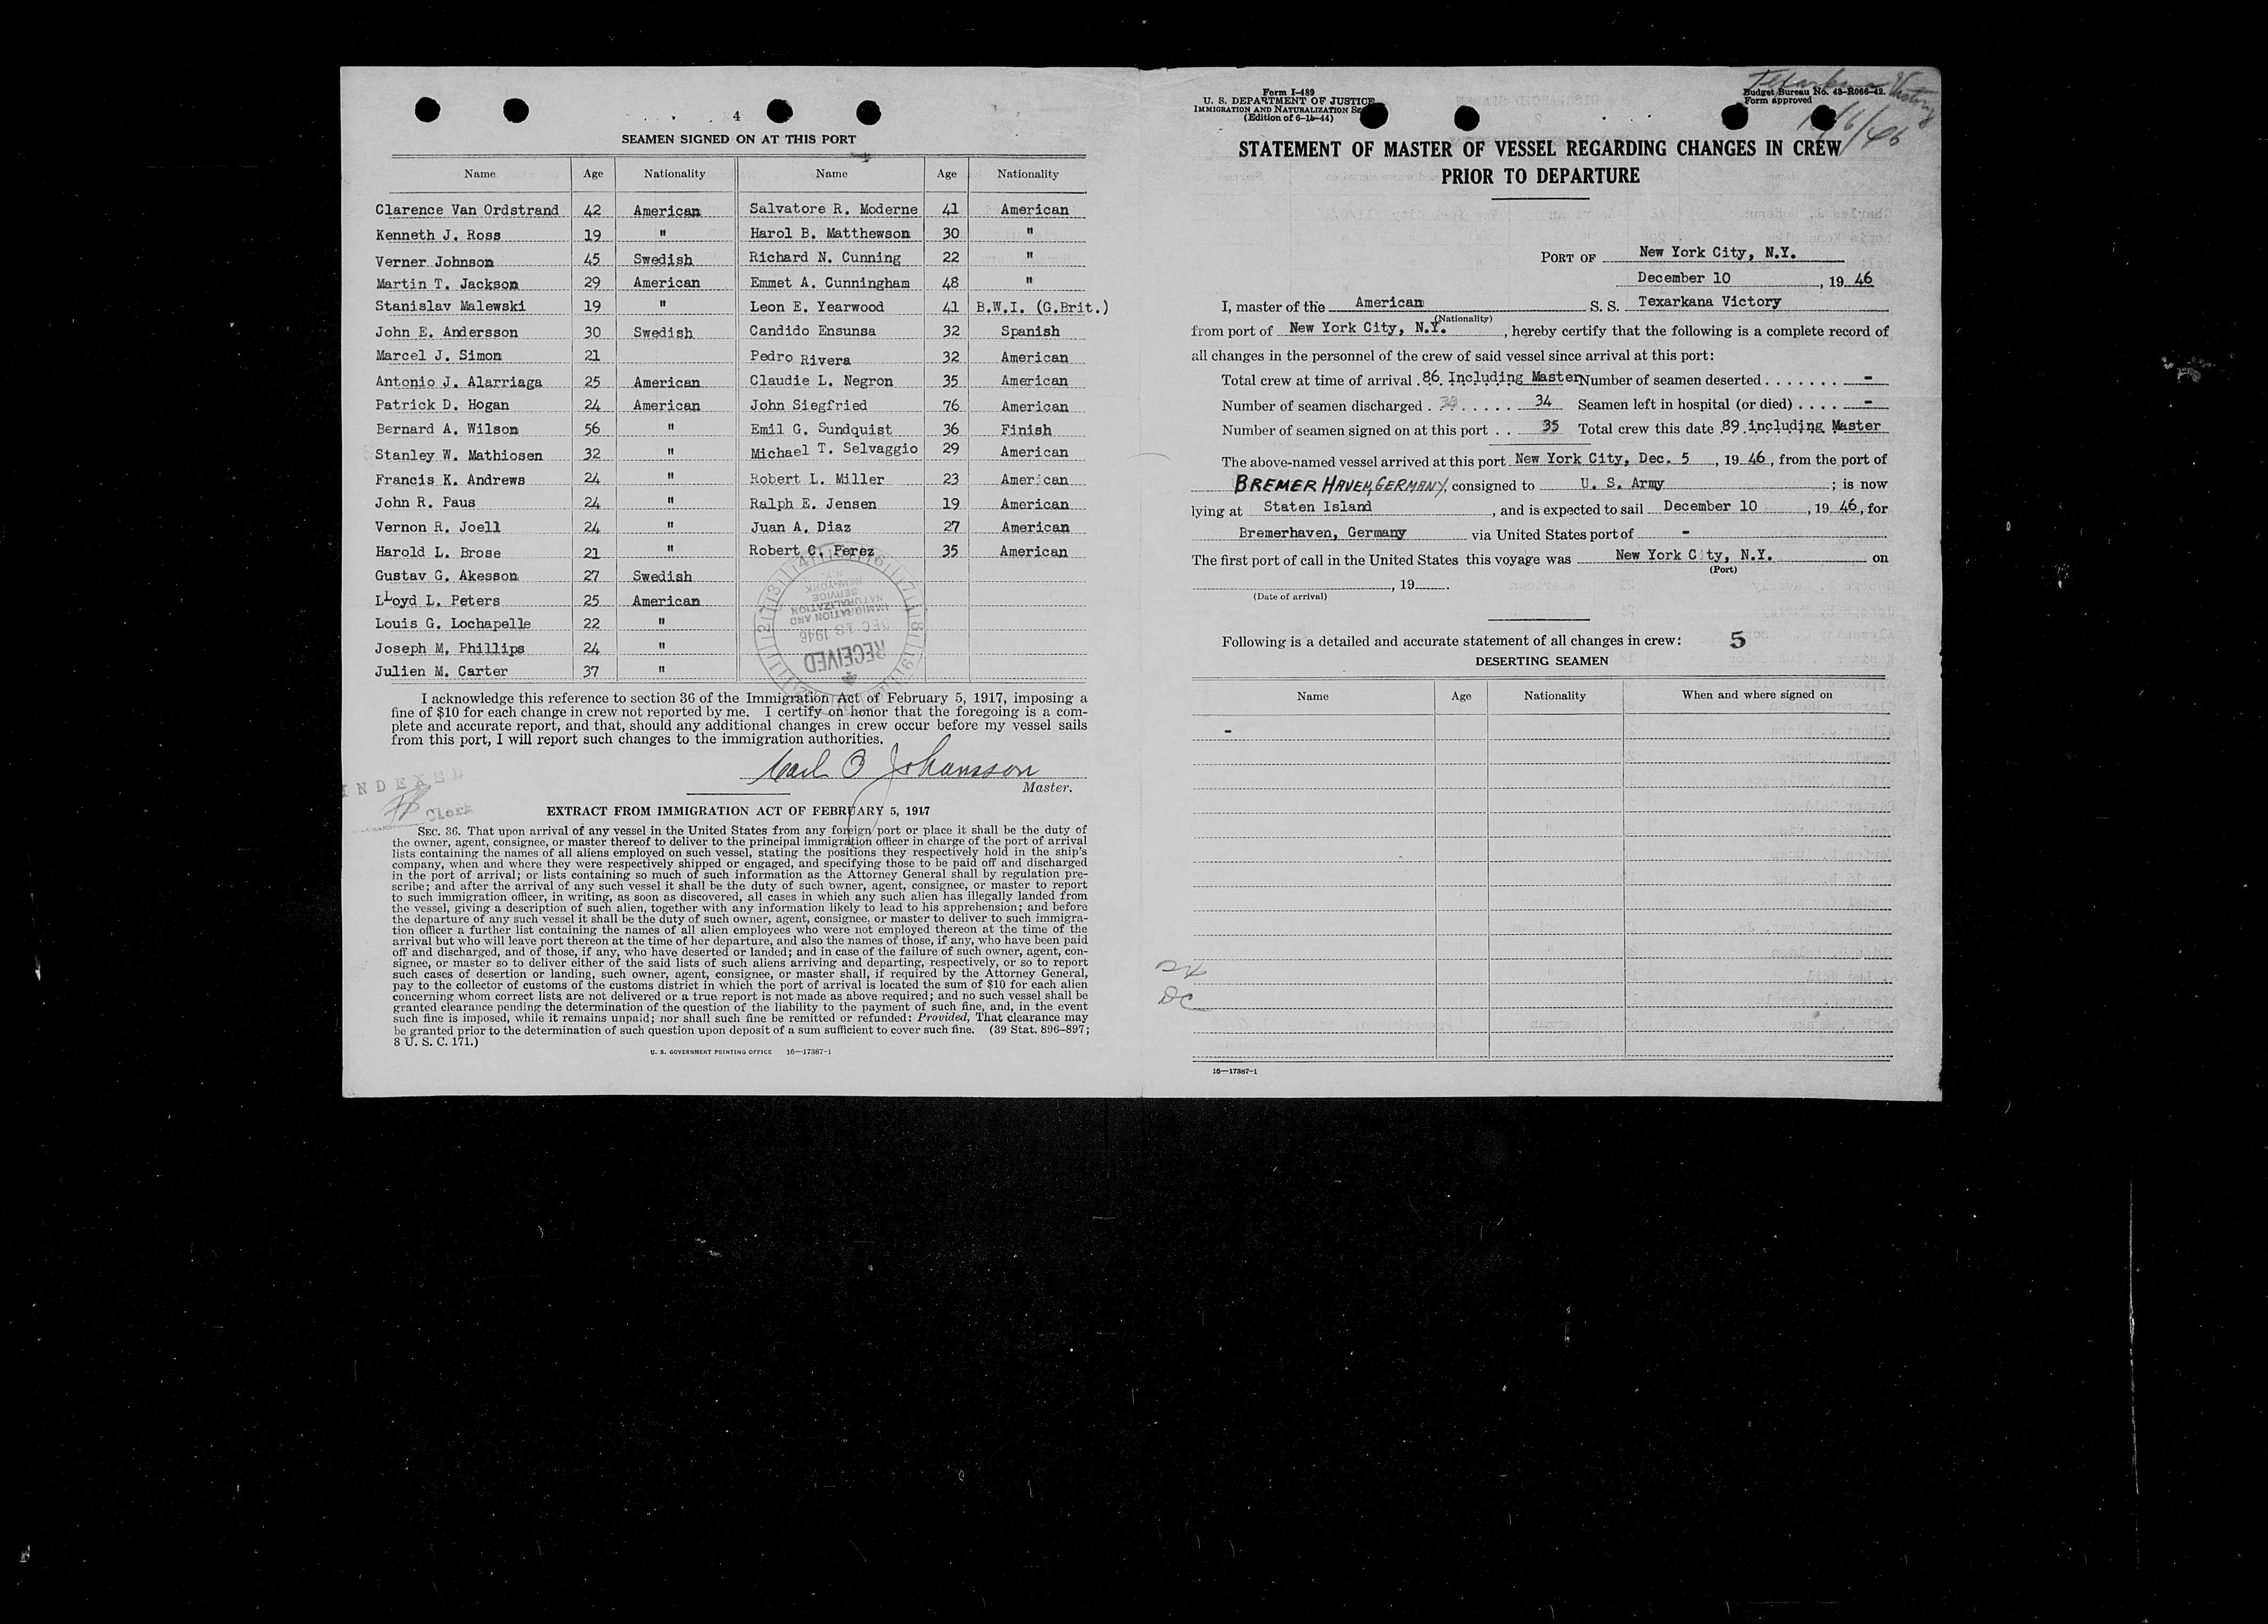 4
SEAMEN SIGNED ON AT THIS PORT
Name Age Nationality Name Age Nationality
Clarence Van Ordstrand 42 American Salvatore R. Moderne 41 American
Kenneth J. Ross 19 " Harol B. Matthewson 30 "
Verner Johnson 45 Swedish Richard N. Cunning 22 "
Martin T. Jackson 29 American Emmet A. Cunningham 48 "
Stanislav Malewski 19 " Leon E. Yearwood 41 B.W.I. (G.Brit.)
John E. Andersson 30 Swedish Candido Ensunsa 32 Spanish
Marcel J. Simon 21 Pedro Rivera 32 American
Antonio J. Alarriaga 25 American Claudie L. Negron 35 American
Patrick D. Hogan 24 American John Siegfried 76 American
Bernard A. Wilson 56 " Emil G. Sundquist 36 Finish
Stanley W. Mathiosen 32 " Michael T. Selvaggio 29 American
Francis K. Andrews 24 " Robert L. Miller 23 American
John R. Paus 24 " Ralph E. Jensen 19 American
Vernon R. Joell 24 " Juan A. Diaz 27 American
Harold L. Brose 21 " Robert C. Perez 35 American
Gustav G. Akesson 27 Swedish
Lloyd L. Peters 25 American
Louis G. Lochapelle 22 "
Joseph M. Phillips 24 "
Julien M. Carter 37 "
RECEIVED
DEC 18 1946
IMMIGRATION AND
NATURALIZATION
SERVICE
NEW YORK
I acknowledge this reference to section 36 of the Immigration Act of February 5, 1917, imposing a
fine of $10 for each change in crew not reported by me. I certify on honor that the foregoing is a com-
plete and accurate report, and that, should any additional changes in crew occur before my vessel sails
from this port, I will report such changes to the immigration authorities.
Carl O Johansson
Master.
INDEXED
Clerk
EXTRACT FROM IMMIGRATION ACT OF FEBRUARY 5, 1917
SEC. 36. That upon arrival of any vessel in the United States from any foreign port or place it shall be the duty of
the owner, agent, consignee, or master thereof to deliver to the principal immigration officer in charge of the port of arrival
lists containing the names of all aliens employed on such vessel, stating the positions they respectively hold in the ship's
company, when and where they were respectively shipped or engaged, and specifying those to be paid off and discharged
in the port of arrival; or lists containing so much of such information as the Attorney General shall by regulation pre-
scribe; and after the arrival of any such vessel it shall be the duty of such owner, agent, consignee, or master to report
to such immigration officer, in writing, as soon as discovered, all cases in which any such alien has illegally landed from
the vessel, giving a description of such alien, together with any information likely to lead to his apprehension; and before
the departure of any such vessel it shall be the duty of such owner, agent, consignee, or master to deliver to such immigra-
tion officer a further list containing the names of all alien employees who were not employed thereon at the time of the
arrival but who will leave port thereon at the time of her departure, and also the names of those, if any, who have been paid
off and discharged, and of those, if any, who have deserted or landed; and in case of the failure of such owner, agent, con-
signee, or master so to deliver either of the said lists of such aliens arriving and departing, respectively, or so to report
such cases of desertion or landing, such owner, agent, consignee, or master shall, if required by the Attorney General,
pay to the collector of customs of the customs district in which the port of arrival is located the sum of $10 for each alien
concerning whom correct lists are not delivered or a true report is not made as above required; and no such vessel shall be
granted clearance pending the determination of the question of the liability to the payment of such fine, and, in the event
such fine is imposed, while it remains unpaid; nor shall such fine be remitted or refunded: Provided, That clearance may
be granted prior to the determination of such question upon deposit of a sum sufficient to cover such fine. (39 Stat. 896-897;
8 U. S. C. 171.)
U. S. GOVERNMENT PRINTING OFFICE 16—17387-1
Form I-489
U. S. DEPARTMENT OF JUSTICE
IMMIGRATION AND NATURALIZATION
(Edition of 6-15-44)
Texarkana Victory
Budget Bureau No. 43-R066-42.
Form approved
STATEMENT OF MASTER OF VESSEL REGARDING CHANGES IN CREW
PRIOR TO DEPARTURE
PORT OF New York City, N.Y.
December 10, 1946
I, master of the American S. S. Texarkana Victory
(Nationality)
from port of New York City, N.Y., hereby certify that the following is a complete record of
all changes in the personnel of the crew of said vessel since arrival at this port:
Total crew at time of arrival 86 Including Master Number of seamen deserted ....... -
Number of seamen discharged ...... 34 Seamen left in hospital (or died) .... -
Number of seamen signed on at this port .. 35 Total crew this date 89 including Master
The above-named vessel arrived at this port New York City, Dec. 5, 1946, from the port of
BREMER HAVEN, GERMANY, consigned to U. S. Army; is now
lying at Staten Island, and is expected to sail December 10, 1946, for
Bremerhaven, Germany via United States port of -
The first port of call in the United States this voyage was New York City, N.Y. on
(Port)
, 19
(Date of arrival)
Following is a detailed and accurate statement of all changes in crew: 5
DESERTING SEAMEN
Name Age Nationality When and where signed on
-
DC
16—17387-1